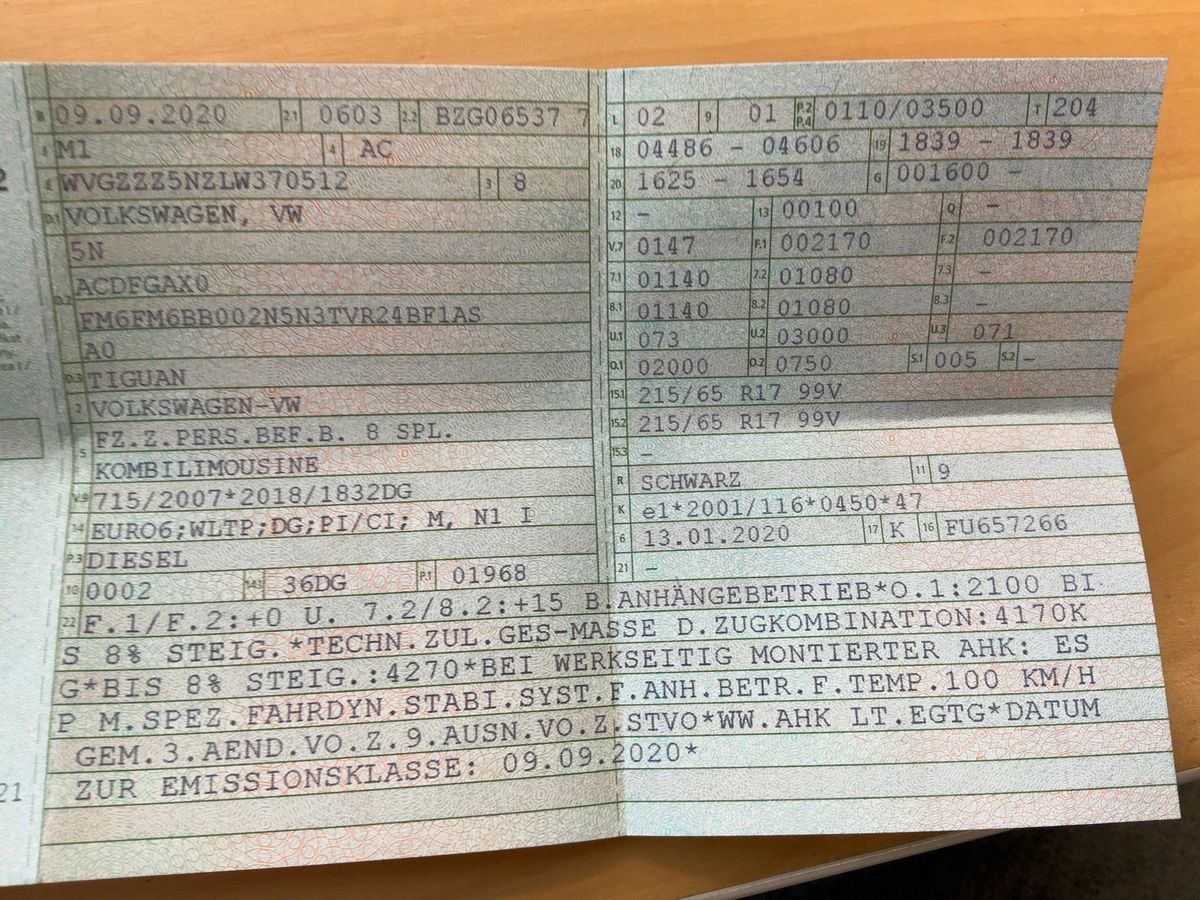 B 09.09.2020 2.1 0603 2.2 BZG06537 7
J M1 4 AC
E WVGZZZ5NZLW370512 3 8
D.1 VOLKSWAGEN, VW
5N
D.2 ACDFGAX0
FM6FM6BB002N5N3TVR24BF1AS
A0
D.3 TIGUAN
2 VOLKSWAGEN-VW
5 FZ.Z.PERS.BEF.B. 8 SPL.
KOMBILIMOUSINE
V.9 715/2007*2018/1832DG
14 EURO6;WLTP;DG;PI/CI; M, N1 I
P.3 DIESEL
10 0002 14.1 36DG P.1 01968
L 02 9 01 P.2 P.4 0110/03500 T 204
18 04486 - 04606 19 1839 - 1839
20 1625 - 1654 G 001600 -
12 - 13 00100 Q -
V.7 0147 F.1 002170 F.2 002170
7.1 01140 7.2 01080 7.3 -
8.1 01140 8.2 01080 8.3 -
U.1 073 U.2 03000 U.3 071
O.1 02000 O.2 0750 S.1 005 S.2 -
15.1 215/65 R17 99V
15.2 215/65 R17 99V
15.3 -
R SCHWARZ 11 9
K e1*2001/116*0450*47
6 13.01.2020 17 K 16 FU657266
21 -
22 F.1/F.2:+0 U. 7.2/8.2:+15 B.ANHÄNGEBETRIEB*O.1:2100 BI
S 8% STEIG.*TECHN.ZUL.GES-MASSE D.ZUGKOMBINATION:4170K
G*BIS 8% STEIG.:4270*BEI WERKSEITIG MONTIERTER AHK: ES
P M.SPEZ.FAHRDYN.STABI.SYST.F.ANH.BETR.F.TEMP.100 KM/H
GEM.3.AEND.VO.Z.9.AUSN.VO.Z.STVO*WW.AHK LT.EGTG*DATUM
ZUR EMISSIONSKLASSE: 09.09.2020*
21